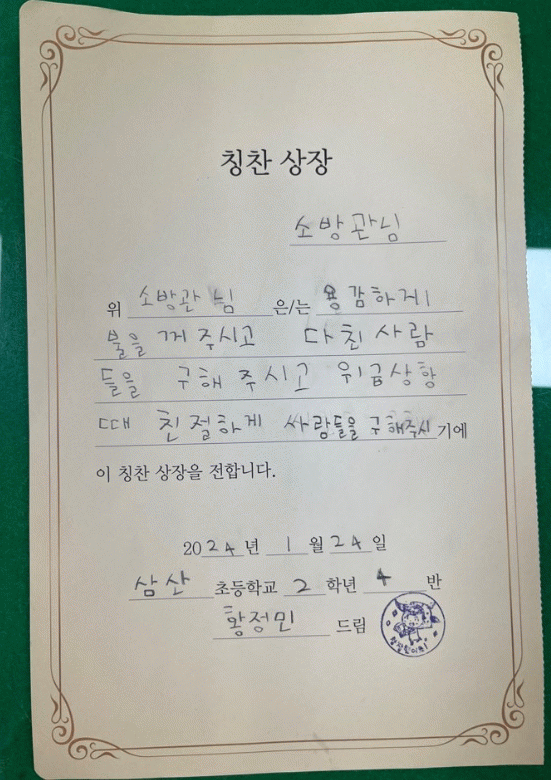 칭찬 상장
소방관님
위 소방관님 은/는 용감하게
불을 꺼 주시고 다친 사람
들을 구해 주시고 위급상황
때 친절하게 싸람들을 구해주시 기에
이 칭찬 상장을 전합니다.
2024년 1월 24일
삼산 초등학교 2 학년 4 반
황정민 드림